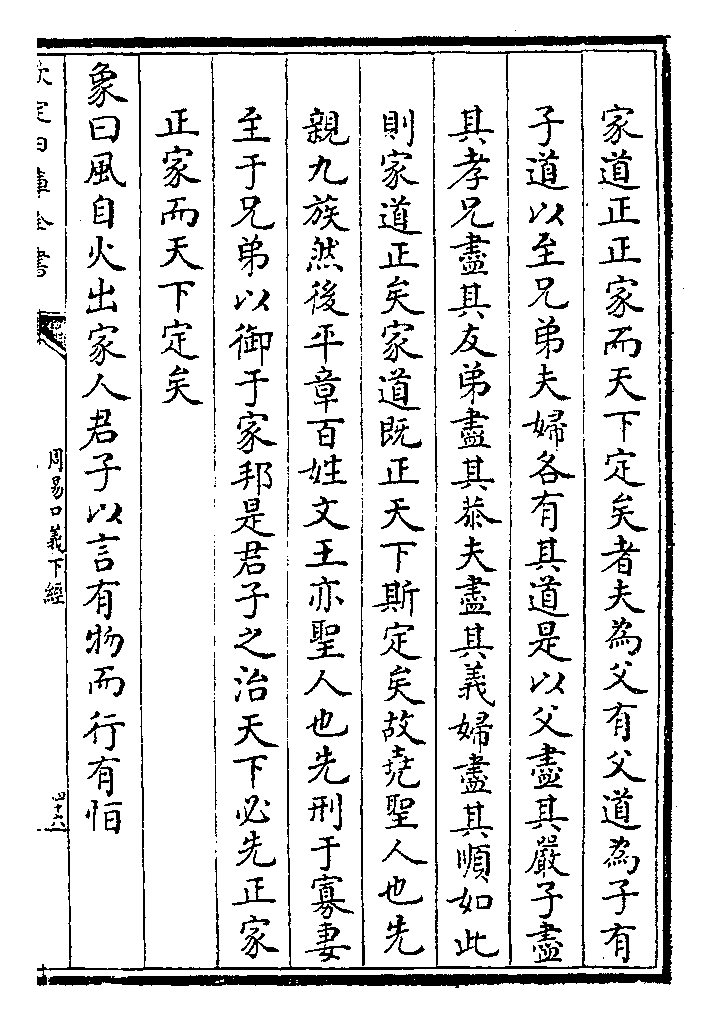 家道正正家而天下定矣者夫為父有父道為子有
子道以至兄弟夫婦各有其道是以父盡其嚴子盡
其孝兄盡其友弟盡其恭夫盡其義婦盡其順如此
則家道正矣家道既正天下斯定矣故堯聖人也先
親九族然後平章百姓文王亦聖人也先刑于寡妻
至于兄弟以御于家邦是君子之治天下必先正家
正家而天下定矣
象曰風自火出家人君子以言有物而行有恒
欽定四庫全書
周易口義下經
四十六